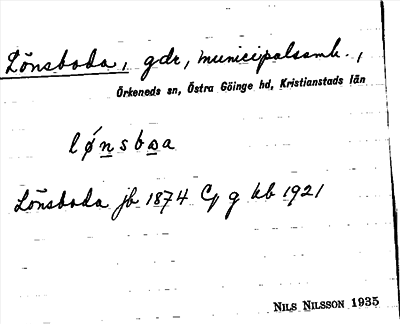 Lönsboda, gdr, municipalsamh.,
Örkeneds sn, Östra Göinge hd, Kristianstads län
lǿnsbɷa
Lönsboda jb 1874 C, g kb 1921
NILS NILSSON 1935